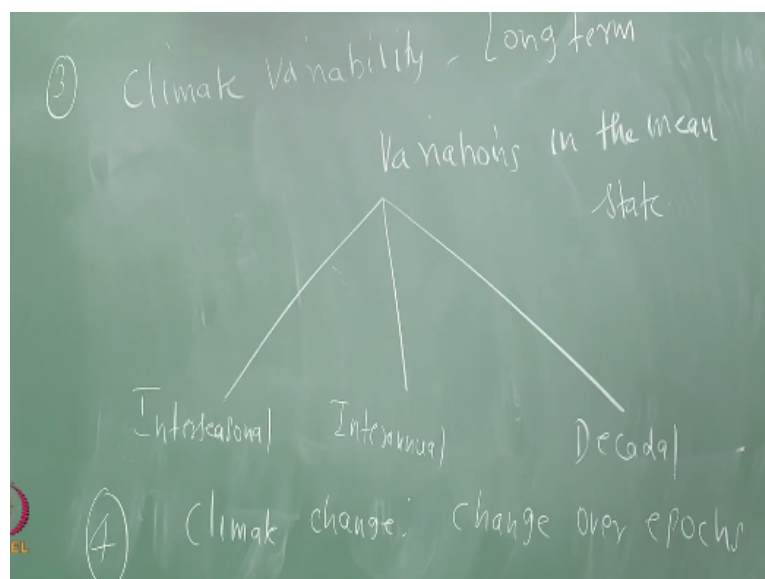 ③ Climate Variability - Long term
Variations in the mean
state
Interseasonal Interannual Decadal
④ Climate change: change over epochs
EL